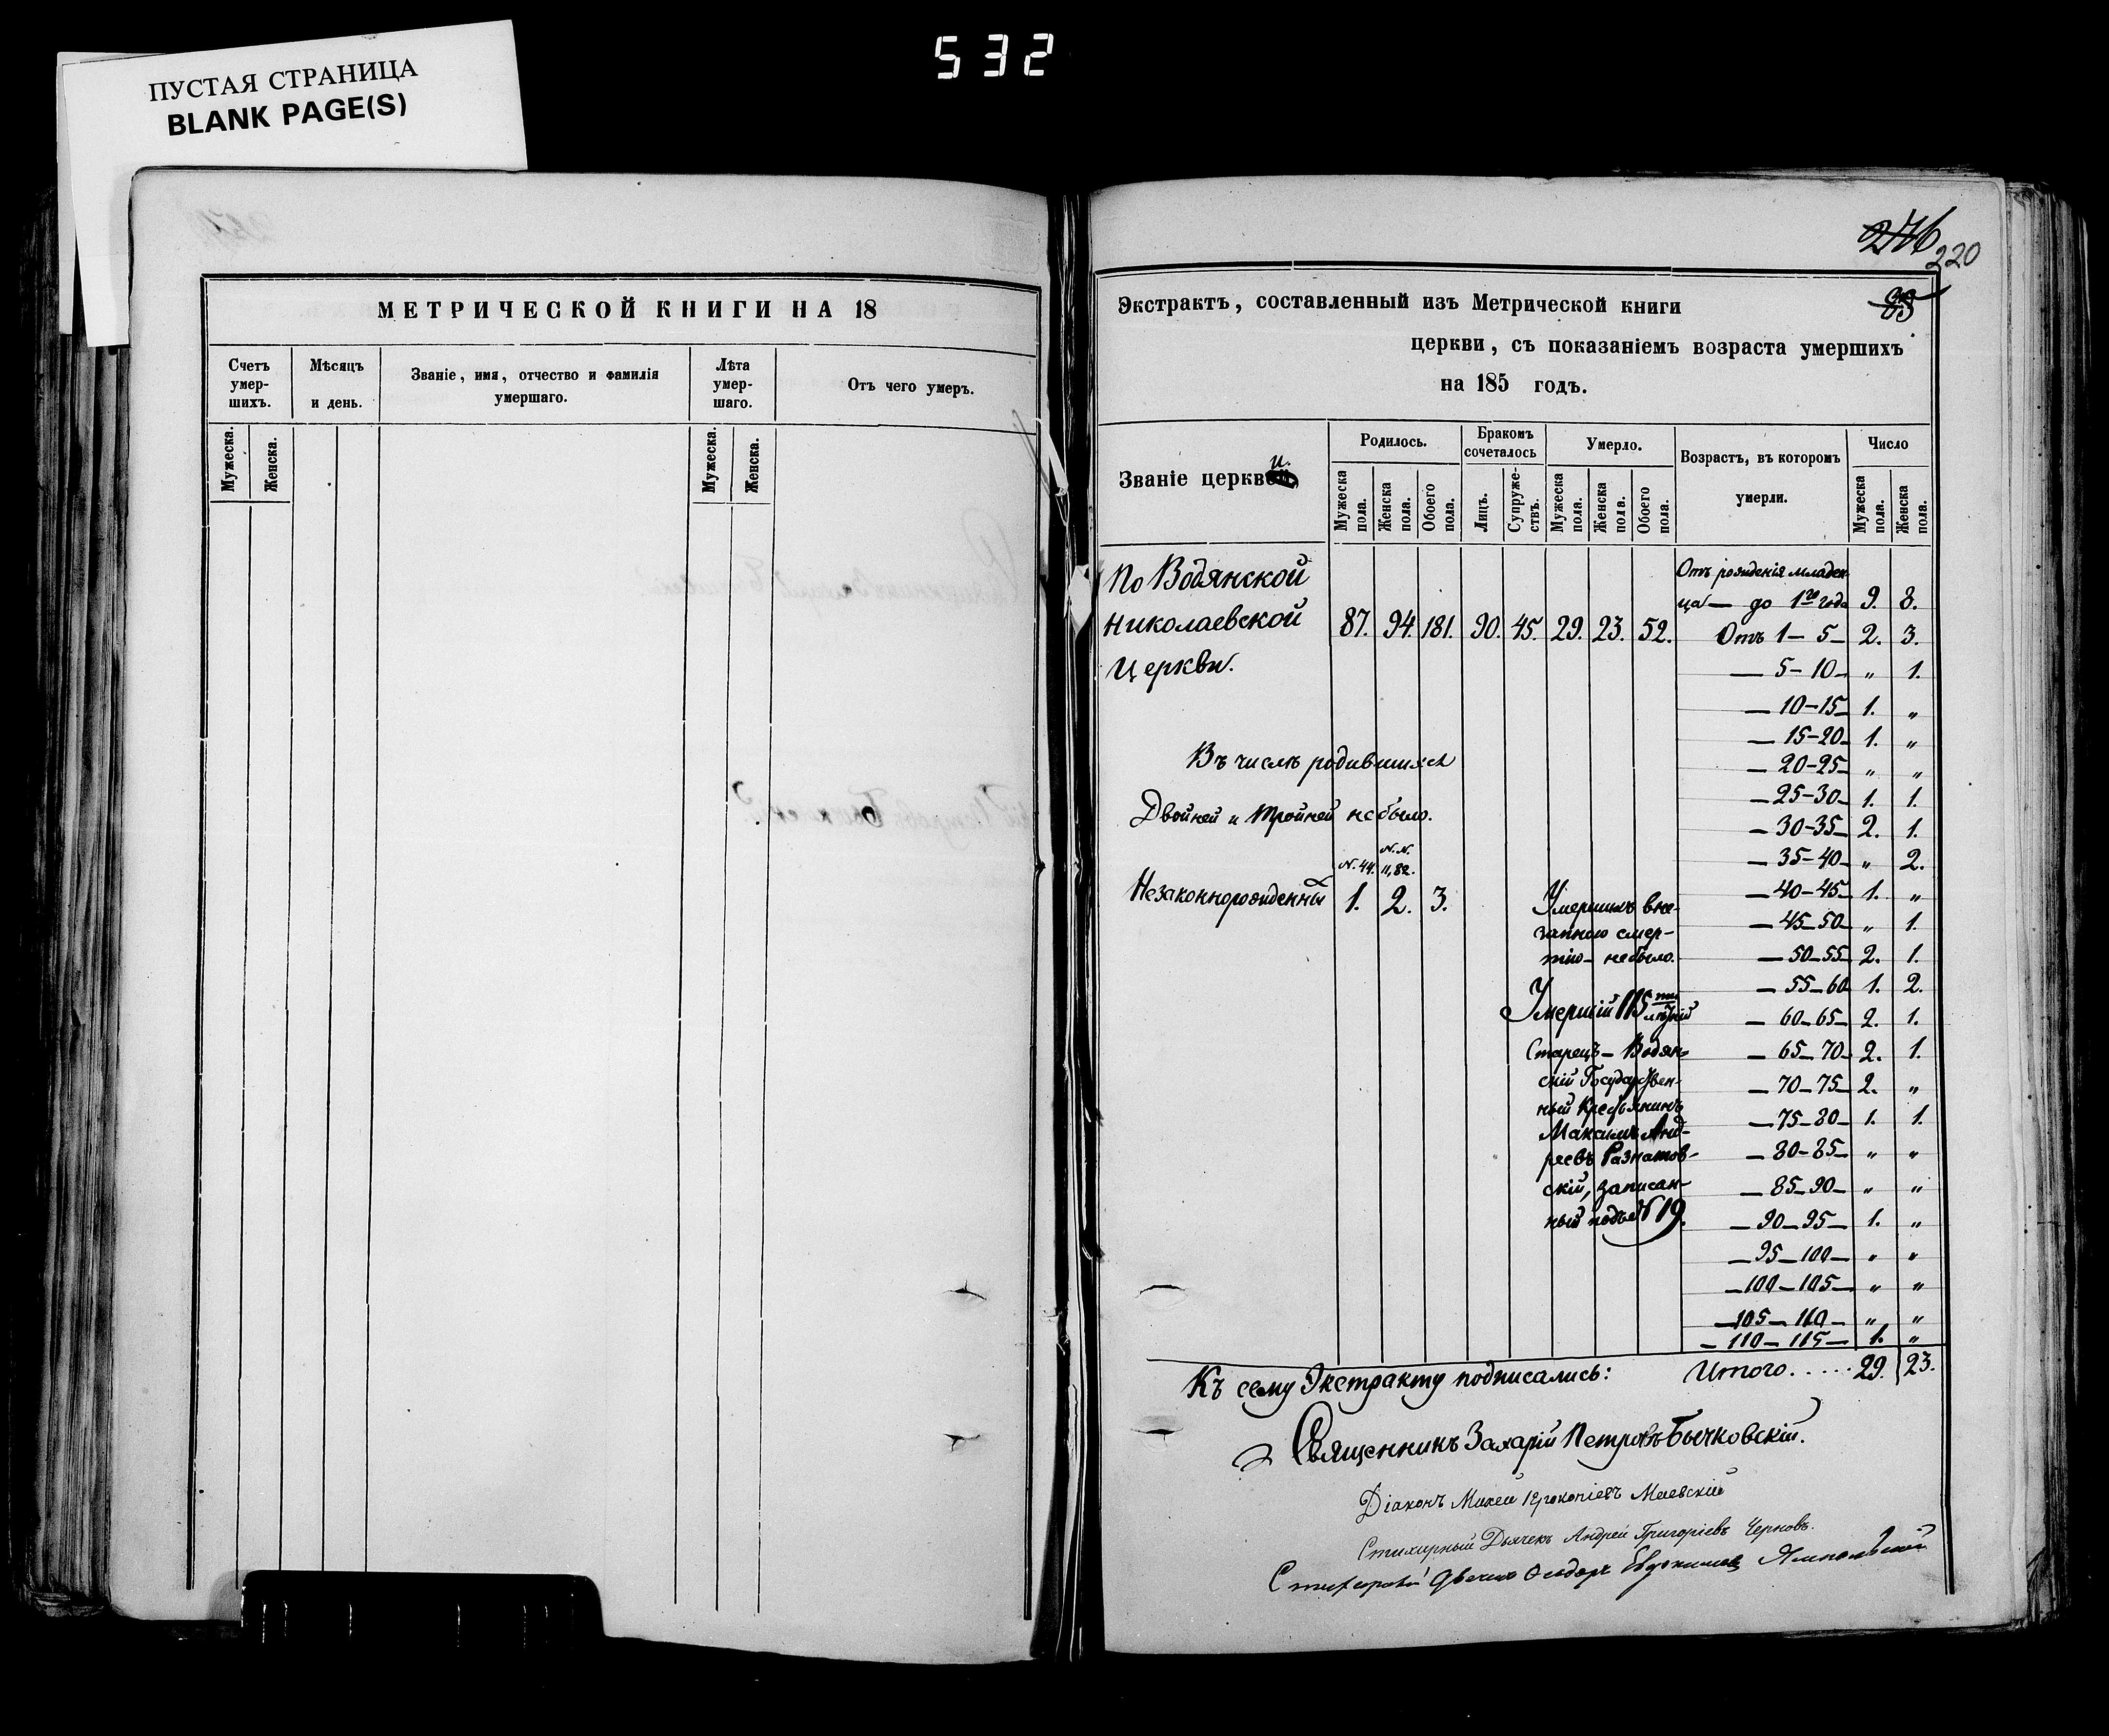 532
ПУСТАЯ СТРАНИЦА
BLANK PAGE(S)
МЕТРИЧЕСКОЙ КНИГИ НА 18
Счетъ умер- шихъ.
Мѣсяцъ и день.
Званіе, имя, отчество и фамилія умершаго.
Лѣта умер- шаго.
Отъ чего умеръ.
Мужеска. Женска. Мужеска. Женска.
276 220
83
Экстрактъ, составленный изъ Метрической книги
церкви, съ показаніемъ возраста умершихъ
на 185 годъ.
Званіе церкви.
Родилось. Бракомъ сочеталось Умерло. Возрастъ, въ которомъ умерли. Число
Мужеска пола. Женска пола. Обоего пола. Лицъ. Супруже- ствъ. Мужеска пола. Женска пола. Обоего пола. Мужеска пола. Женска пола.
По Водянской
Николаевской 87. 94. 181. 90. 45. 29. 23. 52.
Церкви.
Въ числѣ родившихся
Двойней и тройней не было.
N. 44. N.N. 11, 82.
Незаконнорожденных 1. 2. 3.
Умершихъ вне-
запною смер-
тію - не было.
Умершій 115 ти лѣтній
Старецъ - Водян-
скій Государствен-
ный Крестьянинъ
Максимъ Анд-
реевъ Разнатов-
скій, записан-
ный подъ N 19.
Отъ рожденія младен-
ца — до 1го года 9. 8.
Отъ 1 — 5 — 2. 3.
— 5 — 10 — „ 1.
— 10 — 15 — 1. „
— 15 — 20 — 1. „
— 20 — 25 — „ „
— 25 — 30 — 1. 1.
— 30 — 35 — 2. 1.
— 35 — 40 — „ 2.
— 40 — 45 — 1. „
— 45 — 50 — „ 1.
— 50 — 55 — 2. 1.
— 55 — 60 1. 2.
— 60 — 65 — 2. 1.
— 65 — 70 — 2. 1.
— 70 — 75 — 2. „
— 75 — 80 — 1. 1.
— 80 — 85 — „ „
— 85 — 90 — „ „
— 90 — 95 — 1. „
— 95 — 100 — „ „
— 100 — 105 — „ „
— 105 — 110 — „ „
— 110 — 115 — 1. „
Къ сему Экстракту подписались: Итого..... 29. 23.
Священникъ Захарій Петровъ Бычковскій.
Діаконъ Михей Прокопіевъ Маевскій
Стихарный Дьячекъ Андрей Григоріевъ Черновъ.
Стихарный Дьячекъ Ѳеодоръ